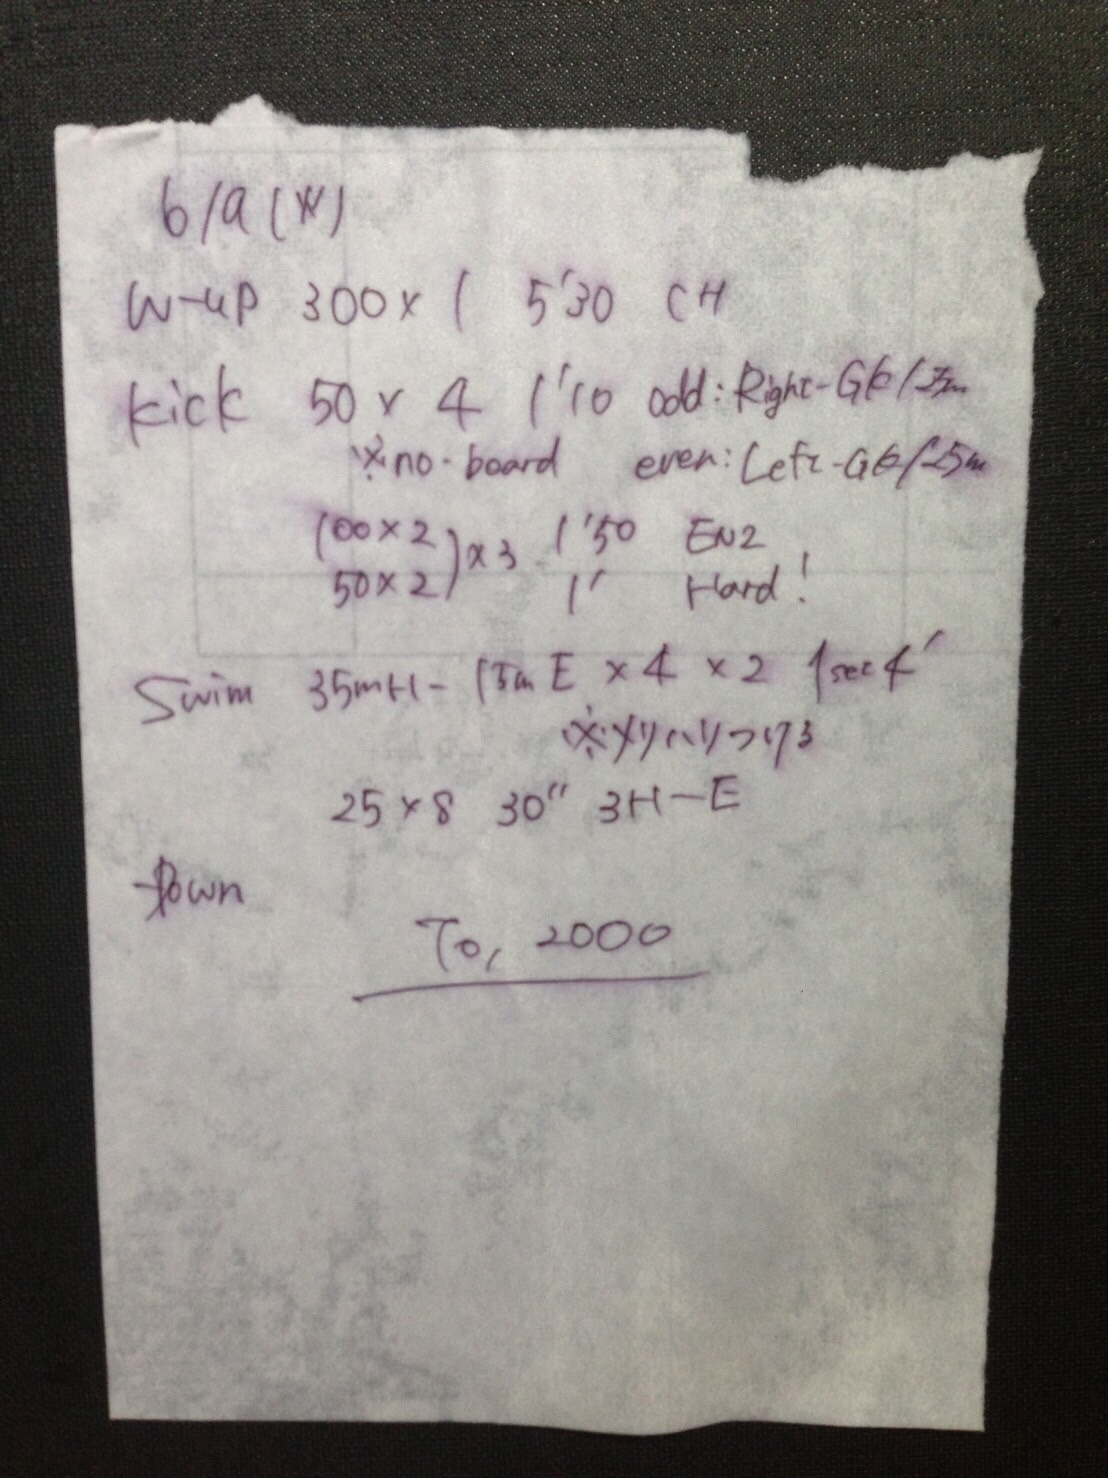 6/9(火)
W-up 300×1 5'30 CH
Kick 50×4 1'10 odd: Right-Gk/25m
※no-board even: Left-Gk/25m
100×2 )×3 1'50 EN2
50×2 1' Hard!
Swim 35mH-15m E ×4 ×2 1sec 4'
※メリハリつける
25×8 30" 3H-E
Down
To, 2000